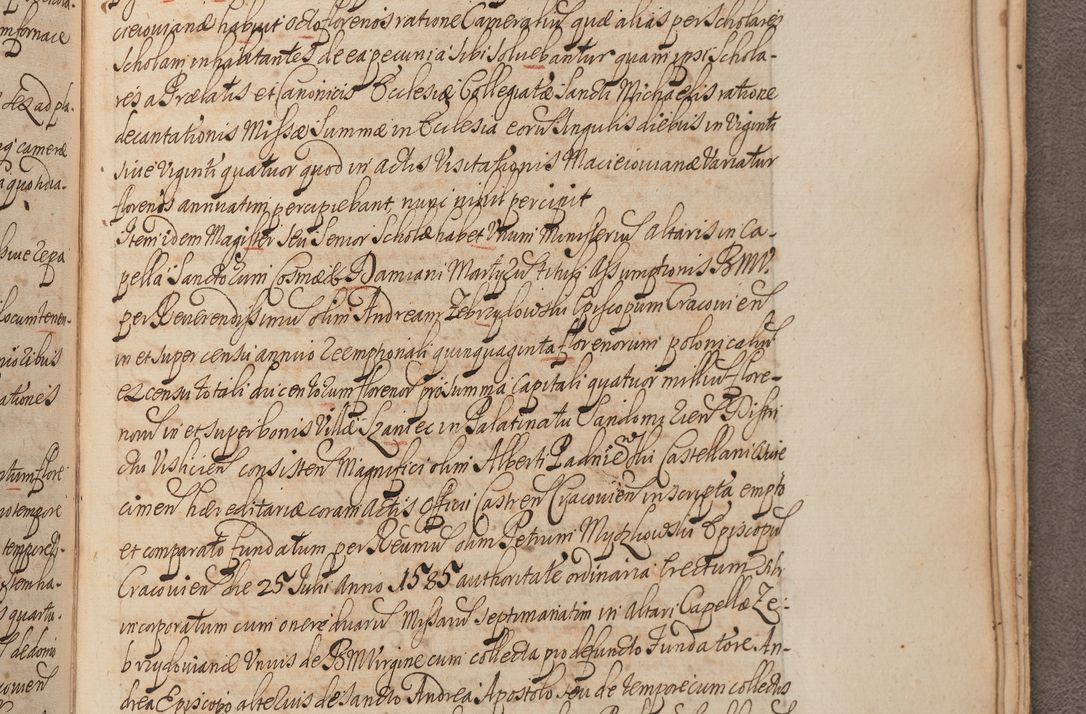 mfornace
dez ad pla-
camere
a quotidia-
sive
Locumtenen-
ationes
rtum flore
tempore
quartu-
creiovianæ habuit octo florenos ratione Cameralium quæ alias per Scholares
Scholam inhabitantes de ea pecunia sibi solvebantur quam ipsi Schola-
res a Prælatis et Canonicis Ecclesiæ Collegiatæ Sancti Michaelis ratione
decantationis Missæ Summæ in Ecclesia eorum singulis diebus in Viginti
sive Viginti quatuor quod in Actis Visitationis Macieiovianæ Variatur
florenis annuatim percipiebant, nunc nihil percipit
Item idem Magister seu Senior Scholæ habet Unum Ministerium Altaris in Ca-
pella Sanctorum Cosmæ & Damiani Martyrum tituli Assumptionis BMV.
per Reverendissimum olim Andream Zebrzydowski Episcopum Cracovien
in et super censu annuo reemptionali quinquaginta florenorum polonicalium
ex censu totali ducentorum florenorum pro summa capitali quatuor millium flore-
norum in et super bonis Villæ Szaniec in Palatinatu Sandomirien Distri
ctu Visliciens consisten Magnifici olim Alberti Padniewski Castellani Oswie
cimen hæreditariæ coram Actis Officii Castren Cracovien inscripta empto
et comparato fundatum per Reverendissimum olim Petrum Myszkowski Episcopum
Cracovien die 25 Julii Anno 1585 authoritate ordinaria Erectum, sibi
incorporatum cum onere duarum Missarum septimanatim in Altari Capellæ Ze-
brzydovianæ Unius de BMVirgine cum collecta pro defuncto Fundatore An-
drea Episcopo alterius de Sancto Andrea Apostolo seu de tempore cum collectis